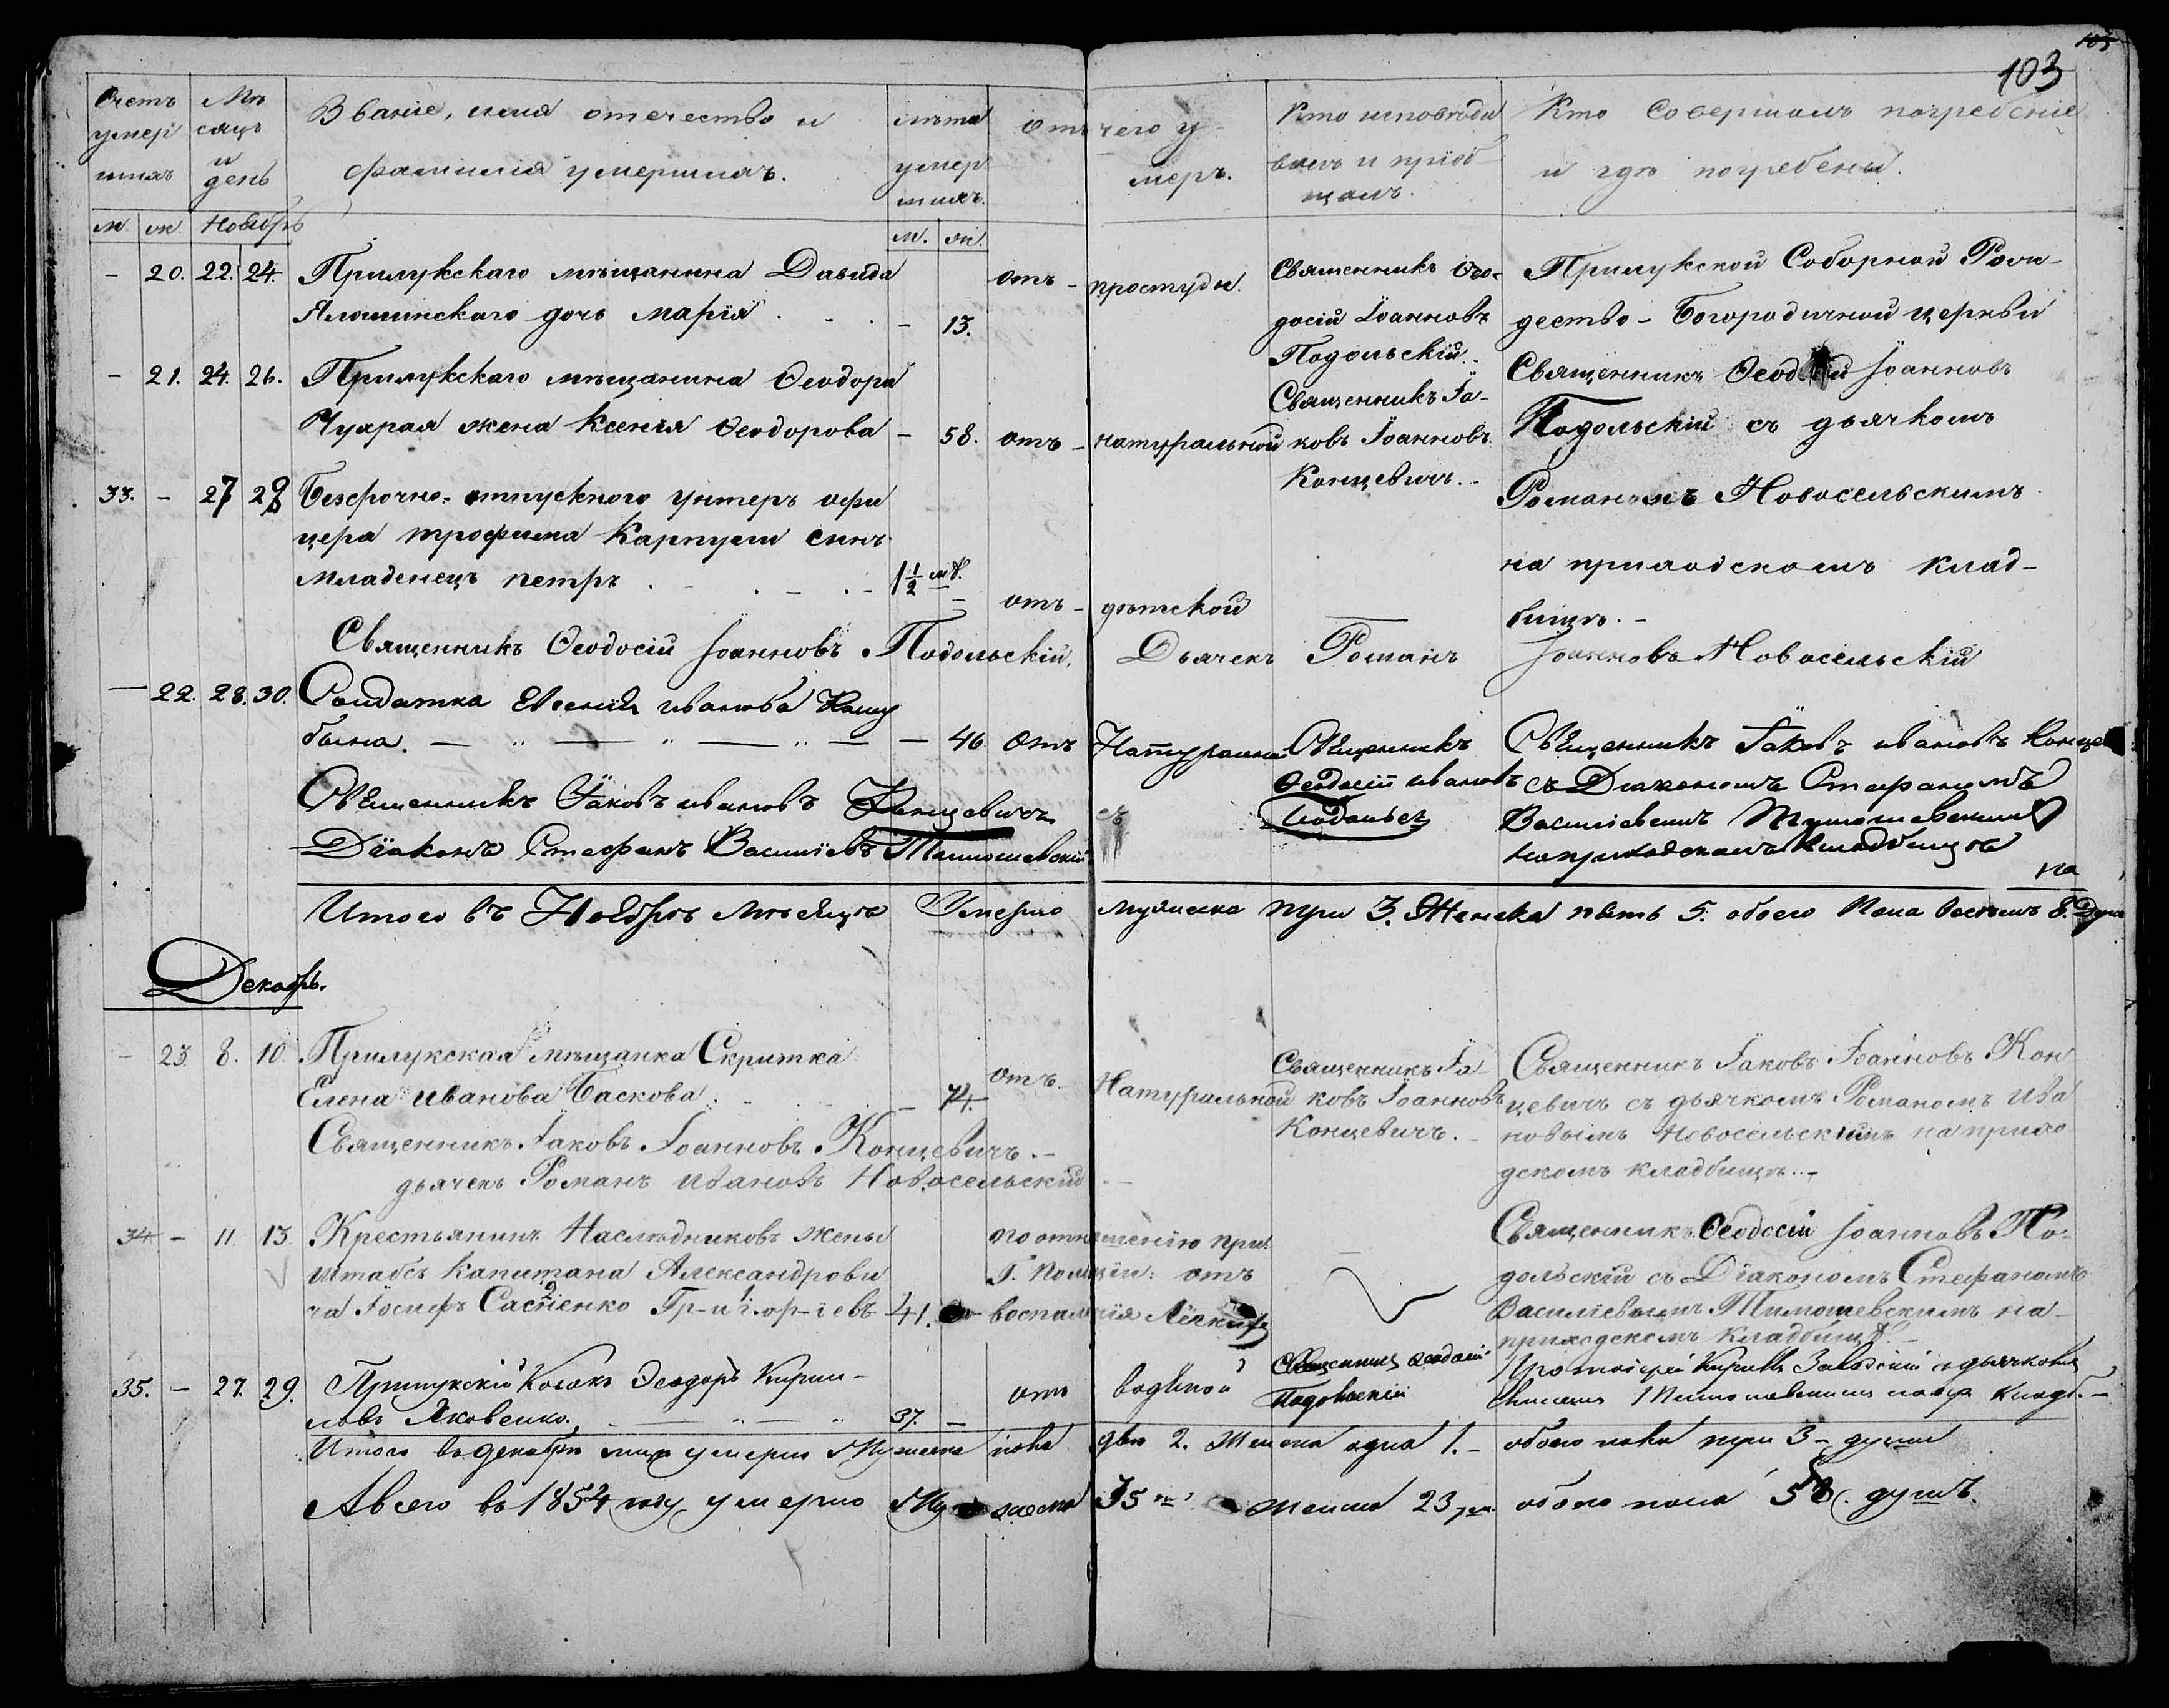 103
Счетъ умершихъ
Мѣсяцъ и день
Званіе, имя отечество и
фамилія умершихъ.
лѣта умершихъ.
отъ чего умеръ.
Кто исповѣдывалъ и пріобщалъ.
Кто Совершалъ погребеніе
и гдѣ погребены.
м. ж. Ноябрь м. ж.
- 20. 22. 24. Прилукскаго мѣщанина Давида отъ - простуды.
дочь Марія - 13.
Священникъ Ѳео-
досій Іоанновъ
Подольскій.-
Прилукской Соборной Рож-
дество-Богородичной церкви
Священникъ Іоанновъ
Подольскій съ дьячкомъ
Романомъ Новосельскимъ
на приходскомъ клад-
бищѣ.-
- 21. 24. 26. Прилукскаго мѣщанина Ѳеодора
Чухрая жена Ксенія Ѳеодорова - 58. отъ - натуральной
Священникъ Іа-
ковъ Іоанновъ
Концевичъ.-
33. - 27 28 Безсрочно-отпускного унтеръ офи
цера трофима сынъ
Младенецъ петръ . - . - . - 1 1/2 отъ - дѣтской
Священникъ Ѳеодосій Іоанновъ Подольскій. Дьячекъ Романъ Іоанновъ Новосельскій
- 22. 28. 30. Солдатка иванова
- " - " - " - 46 отъ
Священникъ Іаковъ ивановъ
съ Діакономъ Стефаномъ
Василіевымъ
на приходскомъ кладбищѣ
Священникъ
Ѳеодосій ивановъ
Священникъ Іаковъ ивановъ Концевичъ
Діаконъ Стефанъ Василіевъ Тимошевскій
Итого въ Ноябрѣ мѣсяцѣ Умерло мужеска три 3. Женска пять 5. обоего Пола восемь 8. Душъ
Декабрь.
- 23 8. 10. Прилукская мѣщанка Скритка
Елена иванова Баскова . - 74. отъ - Натуральной
Священникъ Іа-
ковъ Іоанновъ
Концевичъ.-
Священникъ Іаковъ Іоанновъ Кон
цевичъ съ дьячкомъ Романомъ Ива
новымъ Новосельскимъ на прихо
дскомъ кладбищѣ.-
Священникъ Іаковъ Іоанновъ Концевичъ.-
дьячекъ Романъ Ивановъ Новосельскій
34 - 11. 13. Крестьянинъ Наслѣдниковъ жены
Штабсъ Капитана Александрови
ча Іосифъ 41.
по отношенію
Г. Полиціи: отъ
воспаленія Лёгкихъ
Священникъ Ѳеодосій Іоанновъ По-
дольскій съ Діакономъ Стефаномъ
Василіевымъ Тимошевскимъ на-
приходскомъ кладбищѣ.-
35. - 27. 29. Прилукскій Козакъ Ѳеодоръ Кирил-
ловъ Яковенко. - " - " 37. - отъ водяной
Священникъ Ѳеодосій
Подольскій
Протоіерей Кириллъ Заводскій съ дьячкомъ
Итого въ декабрѣ умерло Мужеска пола два 2. Женска одна 1.- обоего пола три 3 - души
А всего въ 1854 году умерло Мужеска 35 Женска 23 обоего пола 58. душъ.